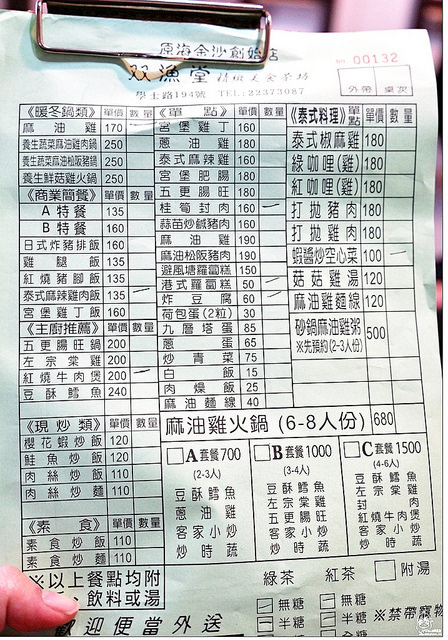 原海金沙創始店
双漁堂 精緻美食茶坊
學士路194號 TEL:22373087
00132
外帶 桌次
《暖冬鍋類》 單價 數量
麻油雞 170
養生蔬菜麻油雞肉鍋 250
養生蔬菜麻油松阪豬鍋 250
養生鮮菇雞火鍋 250
《商業簡餐》 單價 數量
A特餐 135
B特餐 160
日式炸豬排飯 160
雞腿飯 135
紅燒豬腳飯 135
泰式麻辣雞肉飯 135
宮堡雞丁飯 160
《主廚推薦》 單價 數量
五更腸旺鍋 200
左宗棠雞 200
紅燒牛肉煲 200
豆酥鱈魚 240
《現炒類》 單價 數量
櫻花蝦炒飯 120
鮭魚炒飯 120
肉絲炒飯 110
肉絲炒麵 110
《素食》 單價 數量
素食炒飯 110
素食炒麵 110
《單點》 單價 數量
宮堡雞丁 160
蔥油雞 180
泰式麻辣雞 160
宮堡肥腸 180
五更腸旺 180
桂筍封肉 160
蒜苗炒鹹豬肉 160
麻油雞 190
麻油松阪豬肉 190
避風塘蘿蔔糕 150
港式蘿蔔糕 50
炸豆腐 60
荷包蛋(2粒) 30
九層塔蛋 85
蔥蛋 65
炒青菜 75
白飯 15
肉燥飯 25
麻油麵線 40
《泰式料理》 單點 單價 數量
泰式椒麻雞 180
綠咖哩(雞) 180
紅咖哩(雞) 180
打拋豬肉 180
打拋雞肉 180
蝦醬炒空心菜 100
菇菇雞湯 120
麻油雞麵線 120
砂鍋麻油雞粥 500
※先預約(2-3人份)
麻油雞火鍋 (6-8人份) 680
A套餐700
(2-3人)
豆酥鱈魚
蔥油雞
客家小炒
炒時蔬
B套餐1000
(3-4人)
豆酥鱈魚
左宗棠雞
五更腸旺
客家小炒
炒時蔬
C套餐1500
(4-6人)
豆酥鱈魚
左宗棠雞
封肉
紅燒牛肉煲
客家小炒
炒時蔬
※以上餐點均附
、飲料或湯
綠茶 紅茶 附湯
無糖 無糖
半糖 半糖
※禁帶寵物
歡迎便當外送